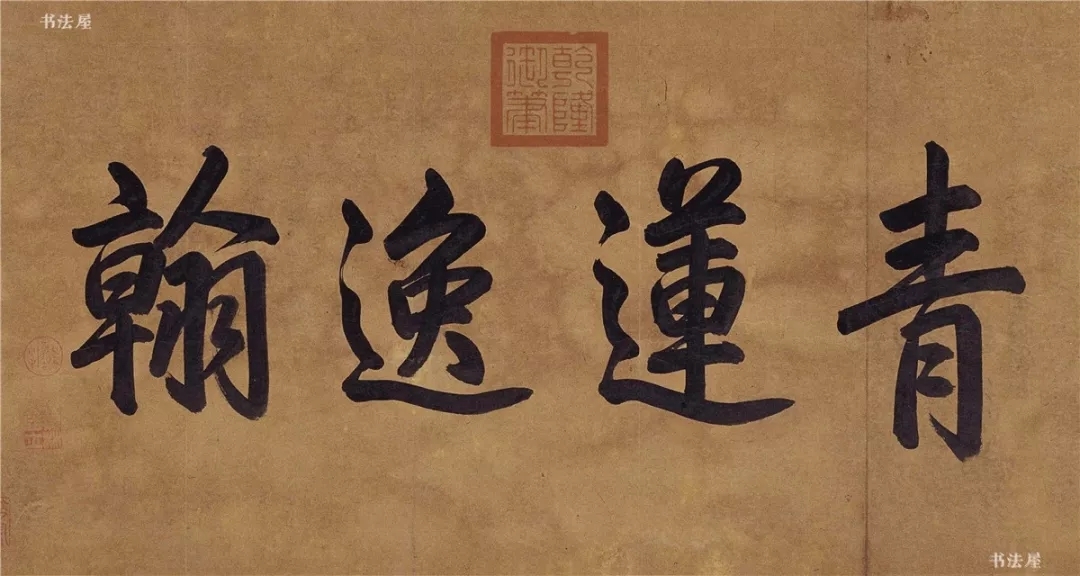 书法屋
乾隆
御筆
青蓮逸翰
书法屋